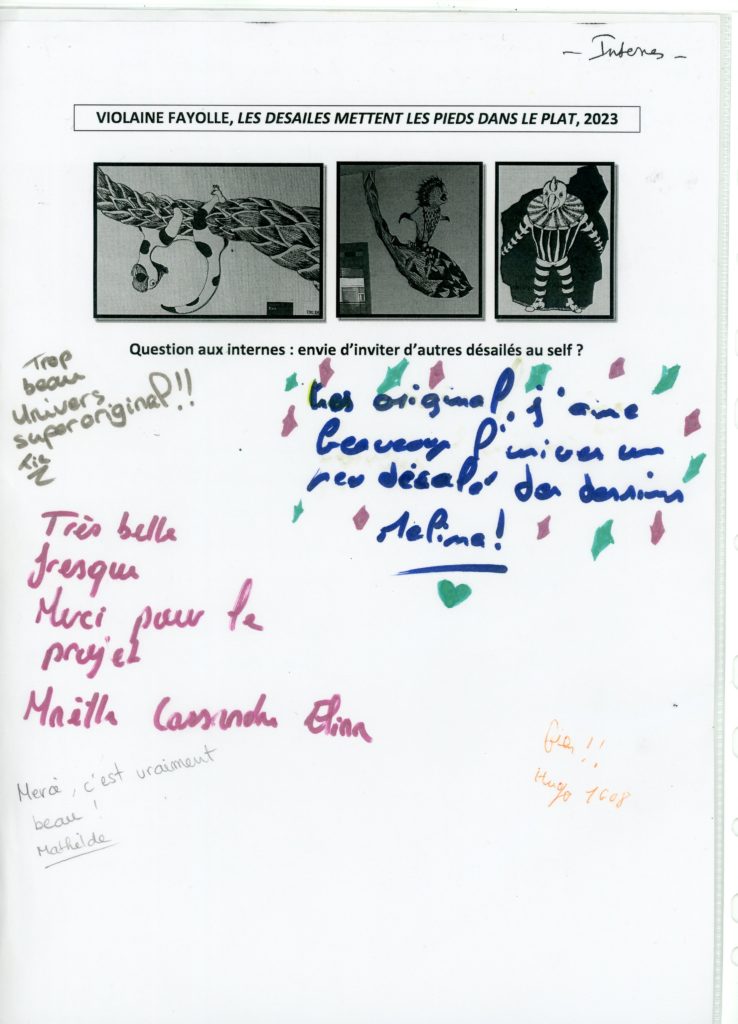 - Internes -
VIOLAINE FAYOLLE, LES DESAILES METTENT LES PIEDS DANS LE PLAT, 2023
Question aux internes : envie d'inviter d'autres désailés au self ?
Trop
beau
Univers
super original!!
original, j'aime
beaucoup l'univers un
peu décalé des dessins
Melina!
Très belle
fresque
Merci pour le
projet
Maëlle Cassandra Elina
Merci, c'est vraiment
beau !
Mathilde
!!
Hugo 1608